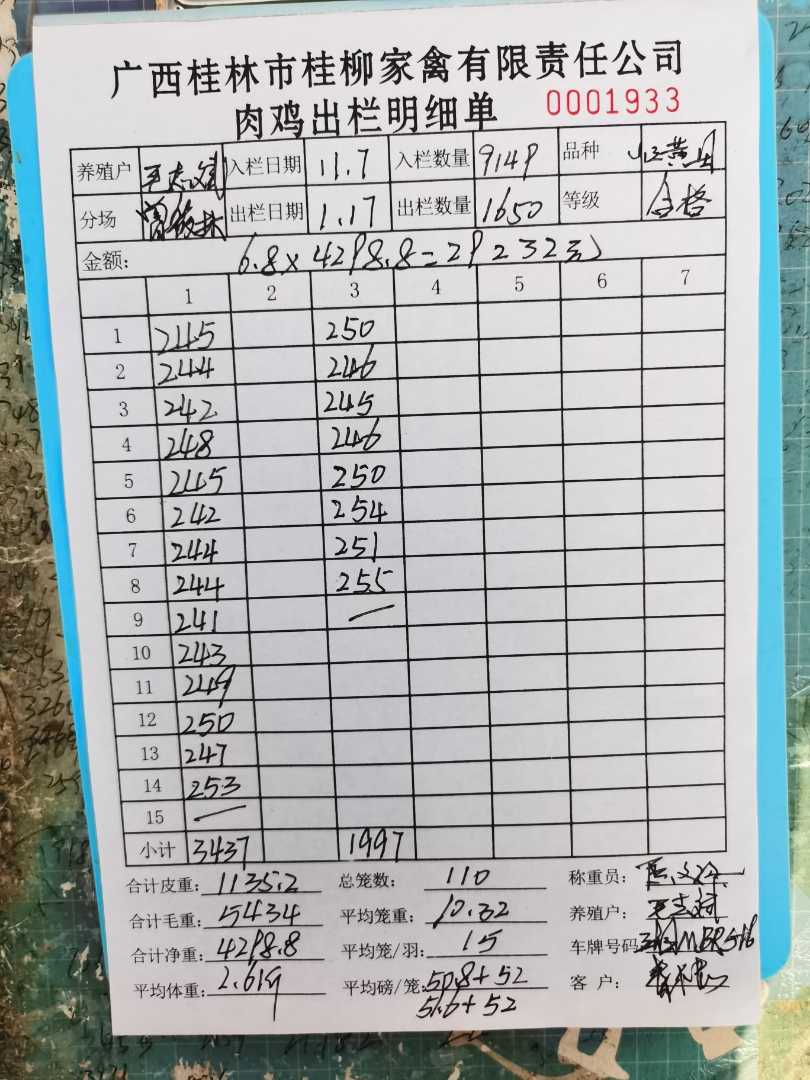 广西桂林市桂柳家禽有限责任公司
肉鸡出栏明细单 0001933
养殖户 王志斌 入栏日期 11.7 入栏数量 9149 品种
分场 出栏日期 1.17 出栏数量 1650 等级 合格
金额: 6.8×4298.8=29232
1 2 3 4 5 6 7
1 245 250
2 244 246
3 242 245
4 248 246
5 245 250
6 242 254
7 244 251
8 244 255
9 241 —
10 243
11 249
12 250
13 247
14 253
15 —
小计 3437 1997
合计皮重: 1135.2 总笼数: 110 称重员:
合计毛重: 5434 平均笼重: 10.32 养殖户:
合计净重: 4298.8 平均笼/羽: 15 车牌号码
平均体重: 2.61 平均磅/笼: 50.8+52 客 户:
51.6+52